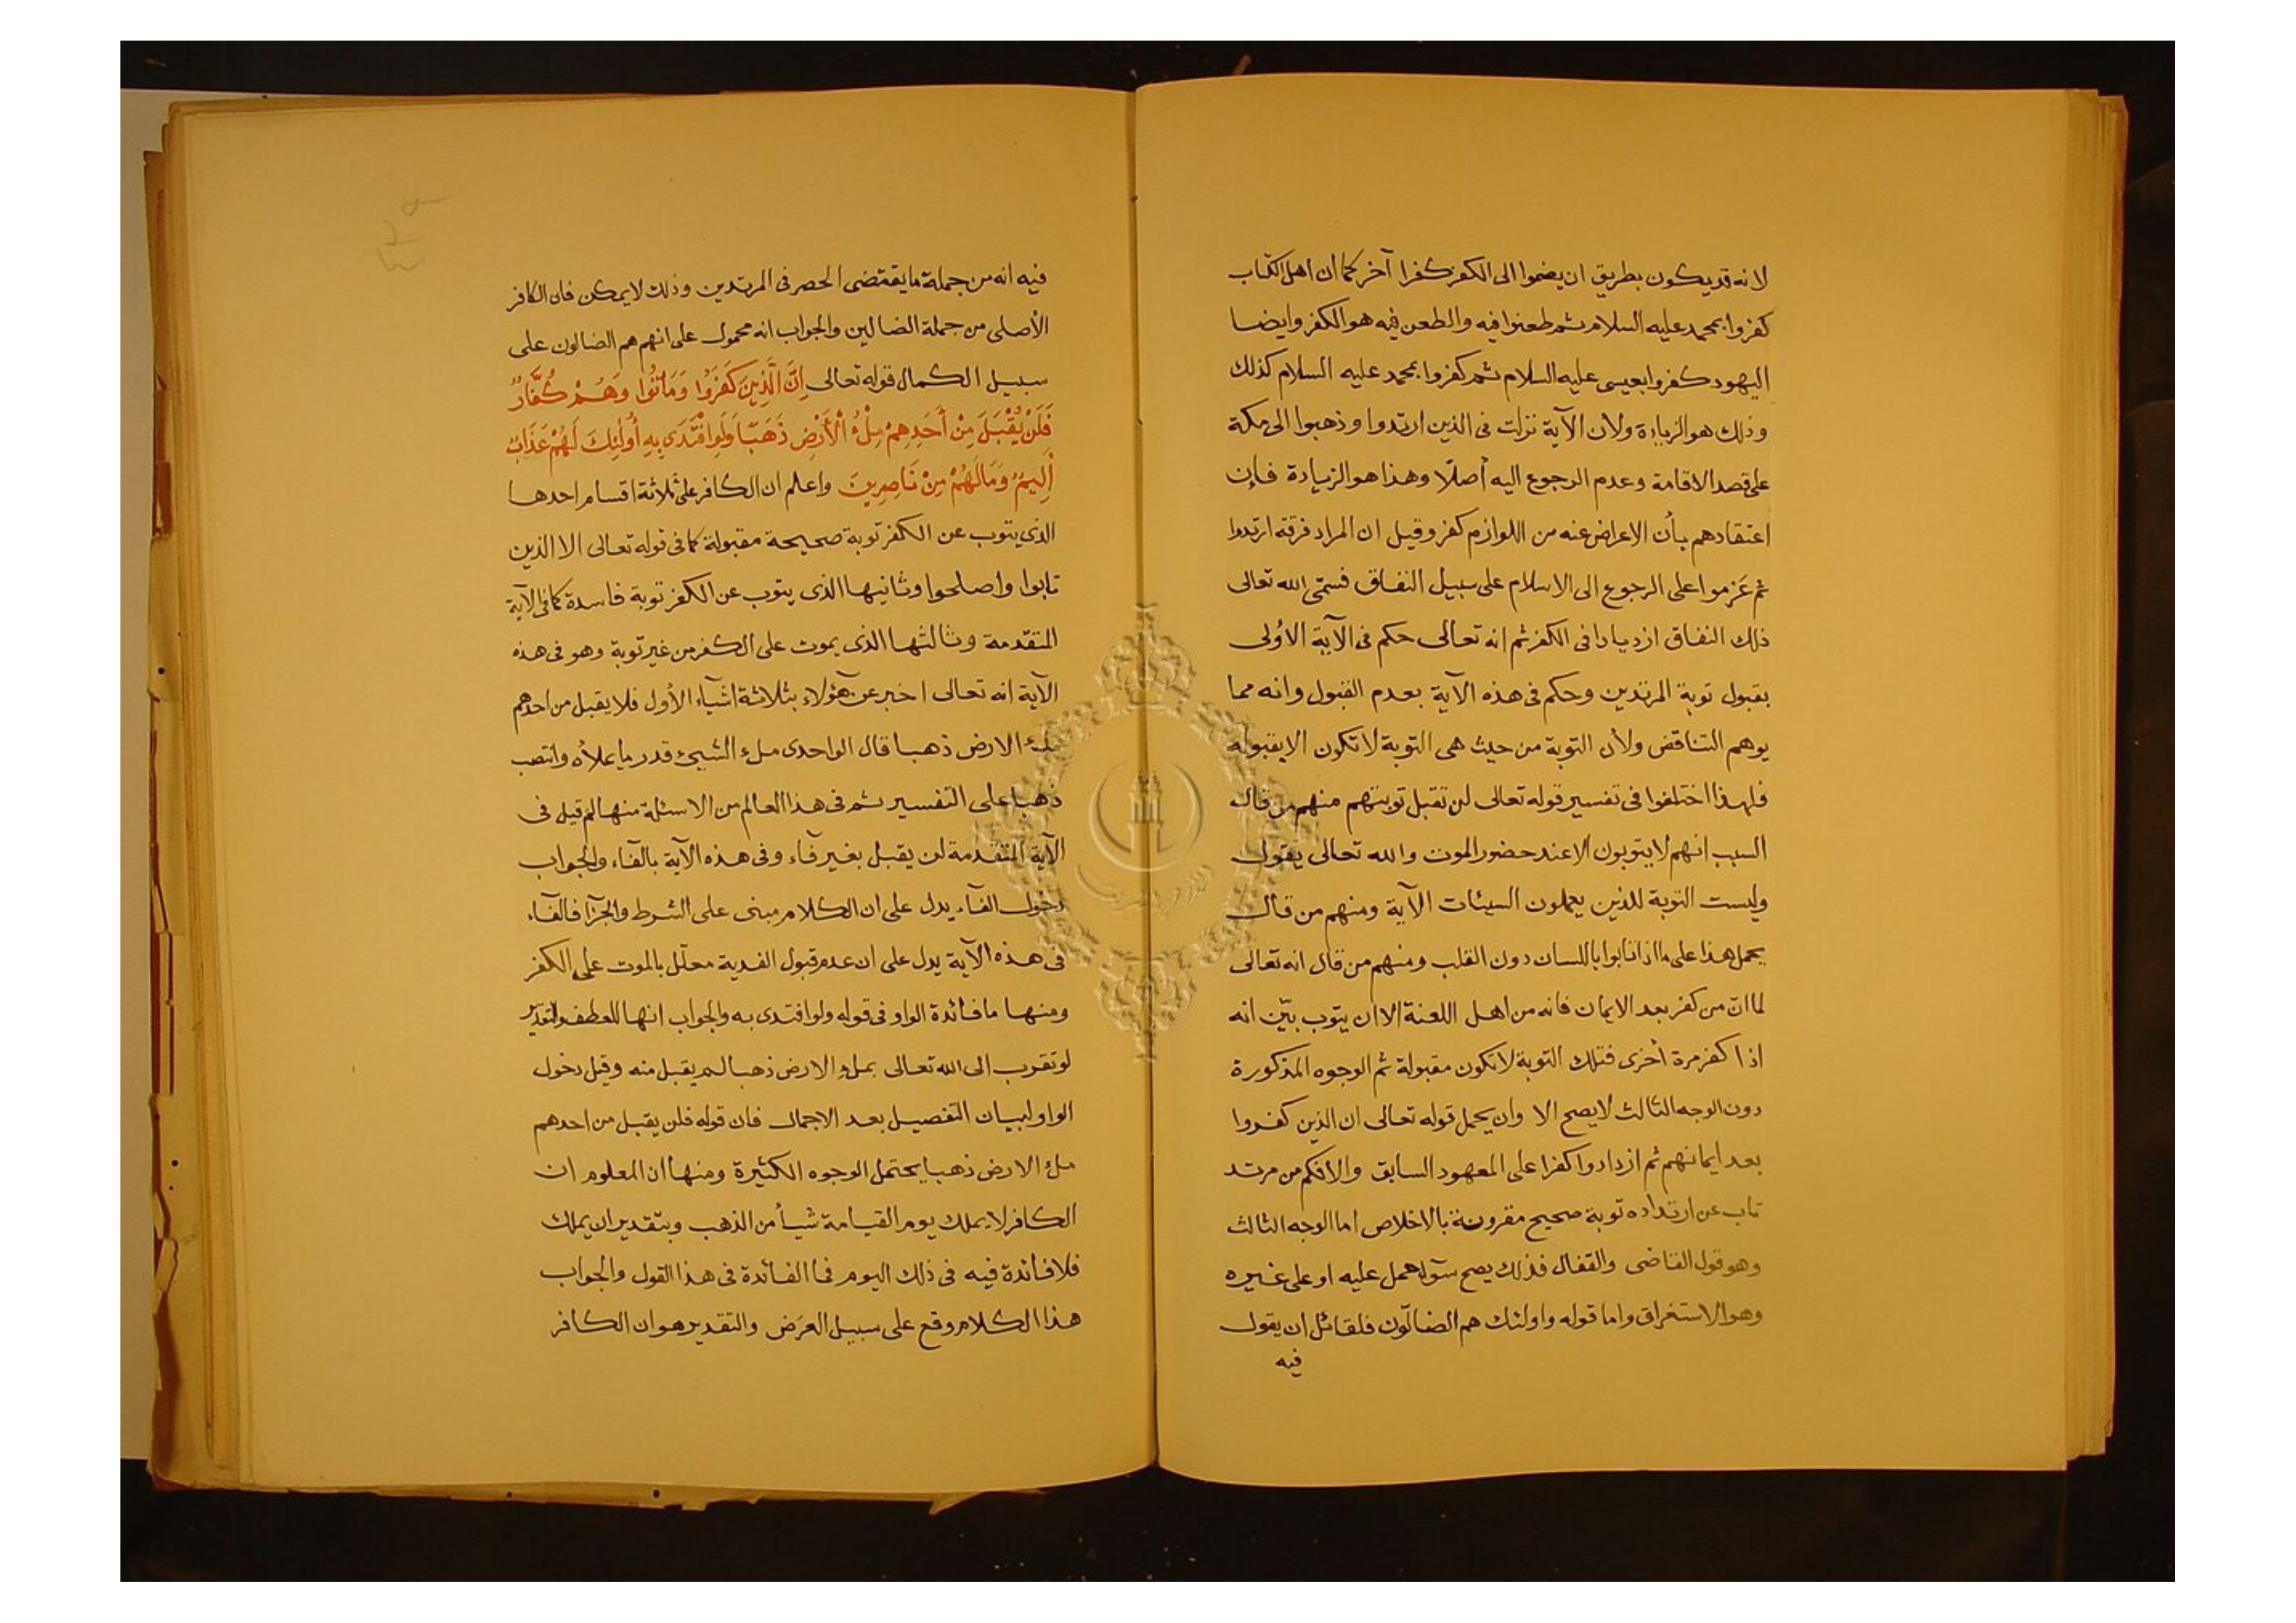 لانه قد يكون بطريق ان يضموا الى الكفر كفرا آخر كما ان اهل الكتاب
كفروا بمحمد عليه السلام ثم طعنوا فيه والطعن فيه هو الكفر وايضا
اليهود كفروا بعيسى عليه السلام ثم كفروا بمحمد عليه السلام كذلك
وذلك هو الزيادة ولان الآية نزلت فى الذين ارتدوا وذهبوا الى مكة
على قصد الاقامة وعدم الرجوع اليه أصلا وهذا هو الزيادة فإن
اعتقادهم بأن الاعراض عنه من اللوازم كفر وقيل ان المراد فرقة ارتدوا
ثم عَزموا على الرجوع الى الاسلام على سبيل النفاق فسمّى الله تعالى
ذلك النفاق ازديادا فى الكفر ثم انه تعالى حكم فى الآية الأولى
بقبول توبة المرتدين وحكم فى هذه الآية بعدم القبول وانه مما
يوهم التناقض ولأن التوبة من حيث هى التوبة لا تكون الا بقبوله
فلهذا اختلفوا فى تفسير قوله تعالى لن تقبل توبتهم منهم من قال
السبب انهم لا يتوبون الا عند حضور الموت والله تعالى يقول
وليست التوبة للذين يعملون السيئات الآية ومنهم من قال
يحمل هذا على ما اذا تابوا باللسان دون القلب ومنهم من قال انه تعالى
لما انّ من كفر بعد الايمان فانه من اهل اللعنة الا ان يتوب بيّن انه
اذا كفر مرة أخرى فتلك التوبة لا تكون مقبولة ثم الوجوه المذكورة
دون الوجه الثالث لا يصح الا وان يحمل قوله تعالى ان الذين كفروا
بعد ايمانهم ثم ازدادوا كفرا على المعهود السابق والا فكم من مرتد
تاب عن ارتداده توبة صحيح مقرونة بالاخلاص اما الوجه الثالث
وهو قول القاضى والقفال فذلك يصح سوآء حمل عليه او على غيره
وهو الاستغراق واما قوله واولئك هم الضالّون فلقائل ان يقول
فيه
فيه انه من جملة ما يقتضى الحصر فى المرتدين وذلك لا يمكن فان الكافر
الأصلى من جملة الضالين والجواب انه محمول على انهم هم الضالون على
سبيل الكمال قوله تعالى اِنَّ الَّذِينَ كَفَرُوا وَمَاتُوا وَهُمْ كُفَّارٌ
فَلَنْ يُقْبَلَ مِنْ أَحَدِهِمْ مِلْءُ الْأَرْضِ ذَهَبًا وَلَوِ افْتَدَى بِهِ أُولَئِكَ لَهُمْ عَذَابٌ
أَلِيمٌ وَمَالَهُمْ مِنْ نَاصِرِينَ واعلم ان الكافر على ثلاثة اقسام احدها
الذى يتوب عن الكفر توبة صحيحة مقبولة كما فى قوله تعالى الا الذين
تابوا واصلحوا وثانيها الذى يتوب عن الكفر توبة فاسدة كما فى الآية
المتقدمة وثالثها الذى يموت على الكفر من غير توبة وهو فى هذه
الآية انه تعالى اخبر عن هؤلاء بثلاثة اشيآء الأول فلا يقبل من احدهم
ملء الارض ذهبا قال الواحدى ملء الشيئ قدر ما يملأه وانتصب
ذهبا على التفسير ثم فى هذا العالم من الاسئلة منها لم قيل فى
الآية المتقدمة لن يقبل بغير فآء وفى هذه الآية بالفآء والجواب
دخول الفآء يدل على ان الكلام مبنى على الشرط والجزآ فالفآء
فى هذه الآية يدل على ان عدم قبول الفدية معلّل بالموت على الكفر
ومنها ما فائدة الواو فى قوله ولو افتدى به والجواب انها للعطف والتقدير
لو تقرب الى الله تعالى بملء الارض ذهبا لم يقبل منه وقيل دخول
الواو لبيان التفصيل بعد الاجمال فان قوله فلن يقبل من احدهم
ملء الارض ذهبا يحتمل الوجوه الكثيرة ومنها ان المعلوم ان
الكافر لا يملك يوم القيامة شيأ من الذهب وبتقدير ان يملك
فلا فائدة فيه فى ذلك اليوم فما الفائدة فى هذا القول والجواب
هذا الكلام وقع على سبيل العرَض والتقدير هو ان الكافر